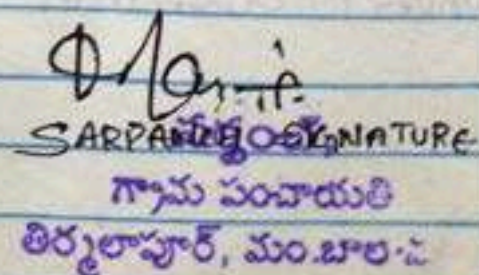 SARPANCH SIGNATURE
సర్పంచ్
గ్రామ పంచాయతి
తిర్మలాపూర్, మం.బాల